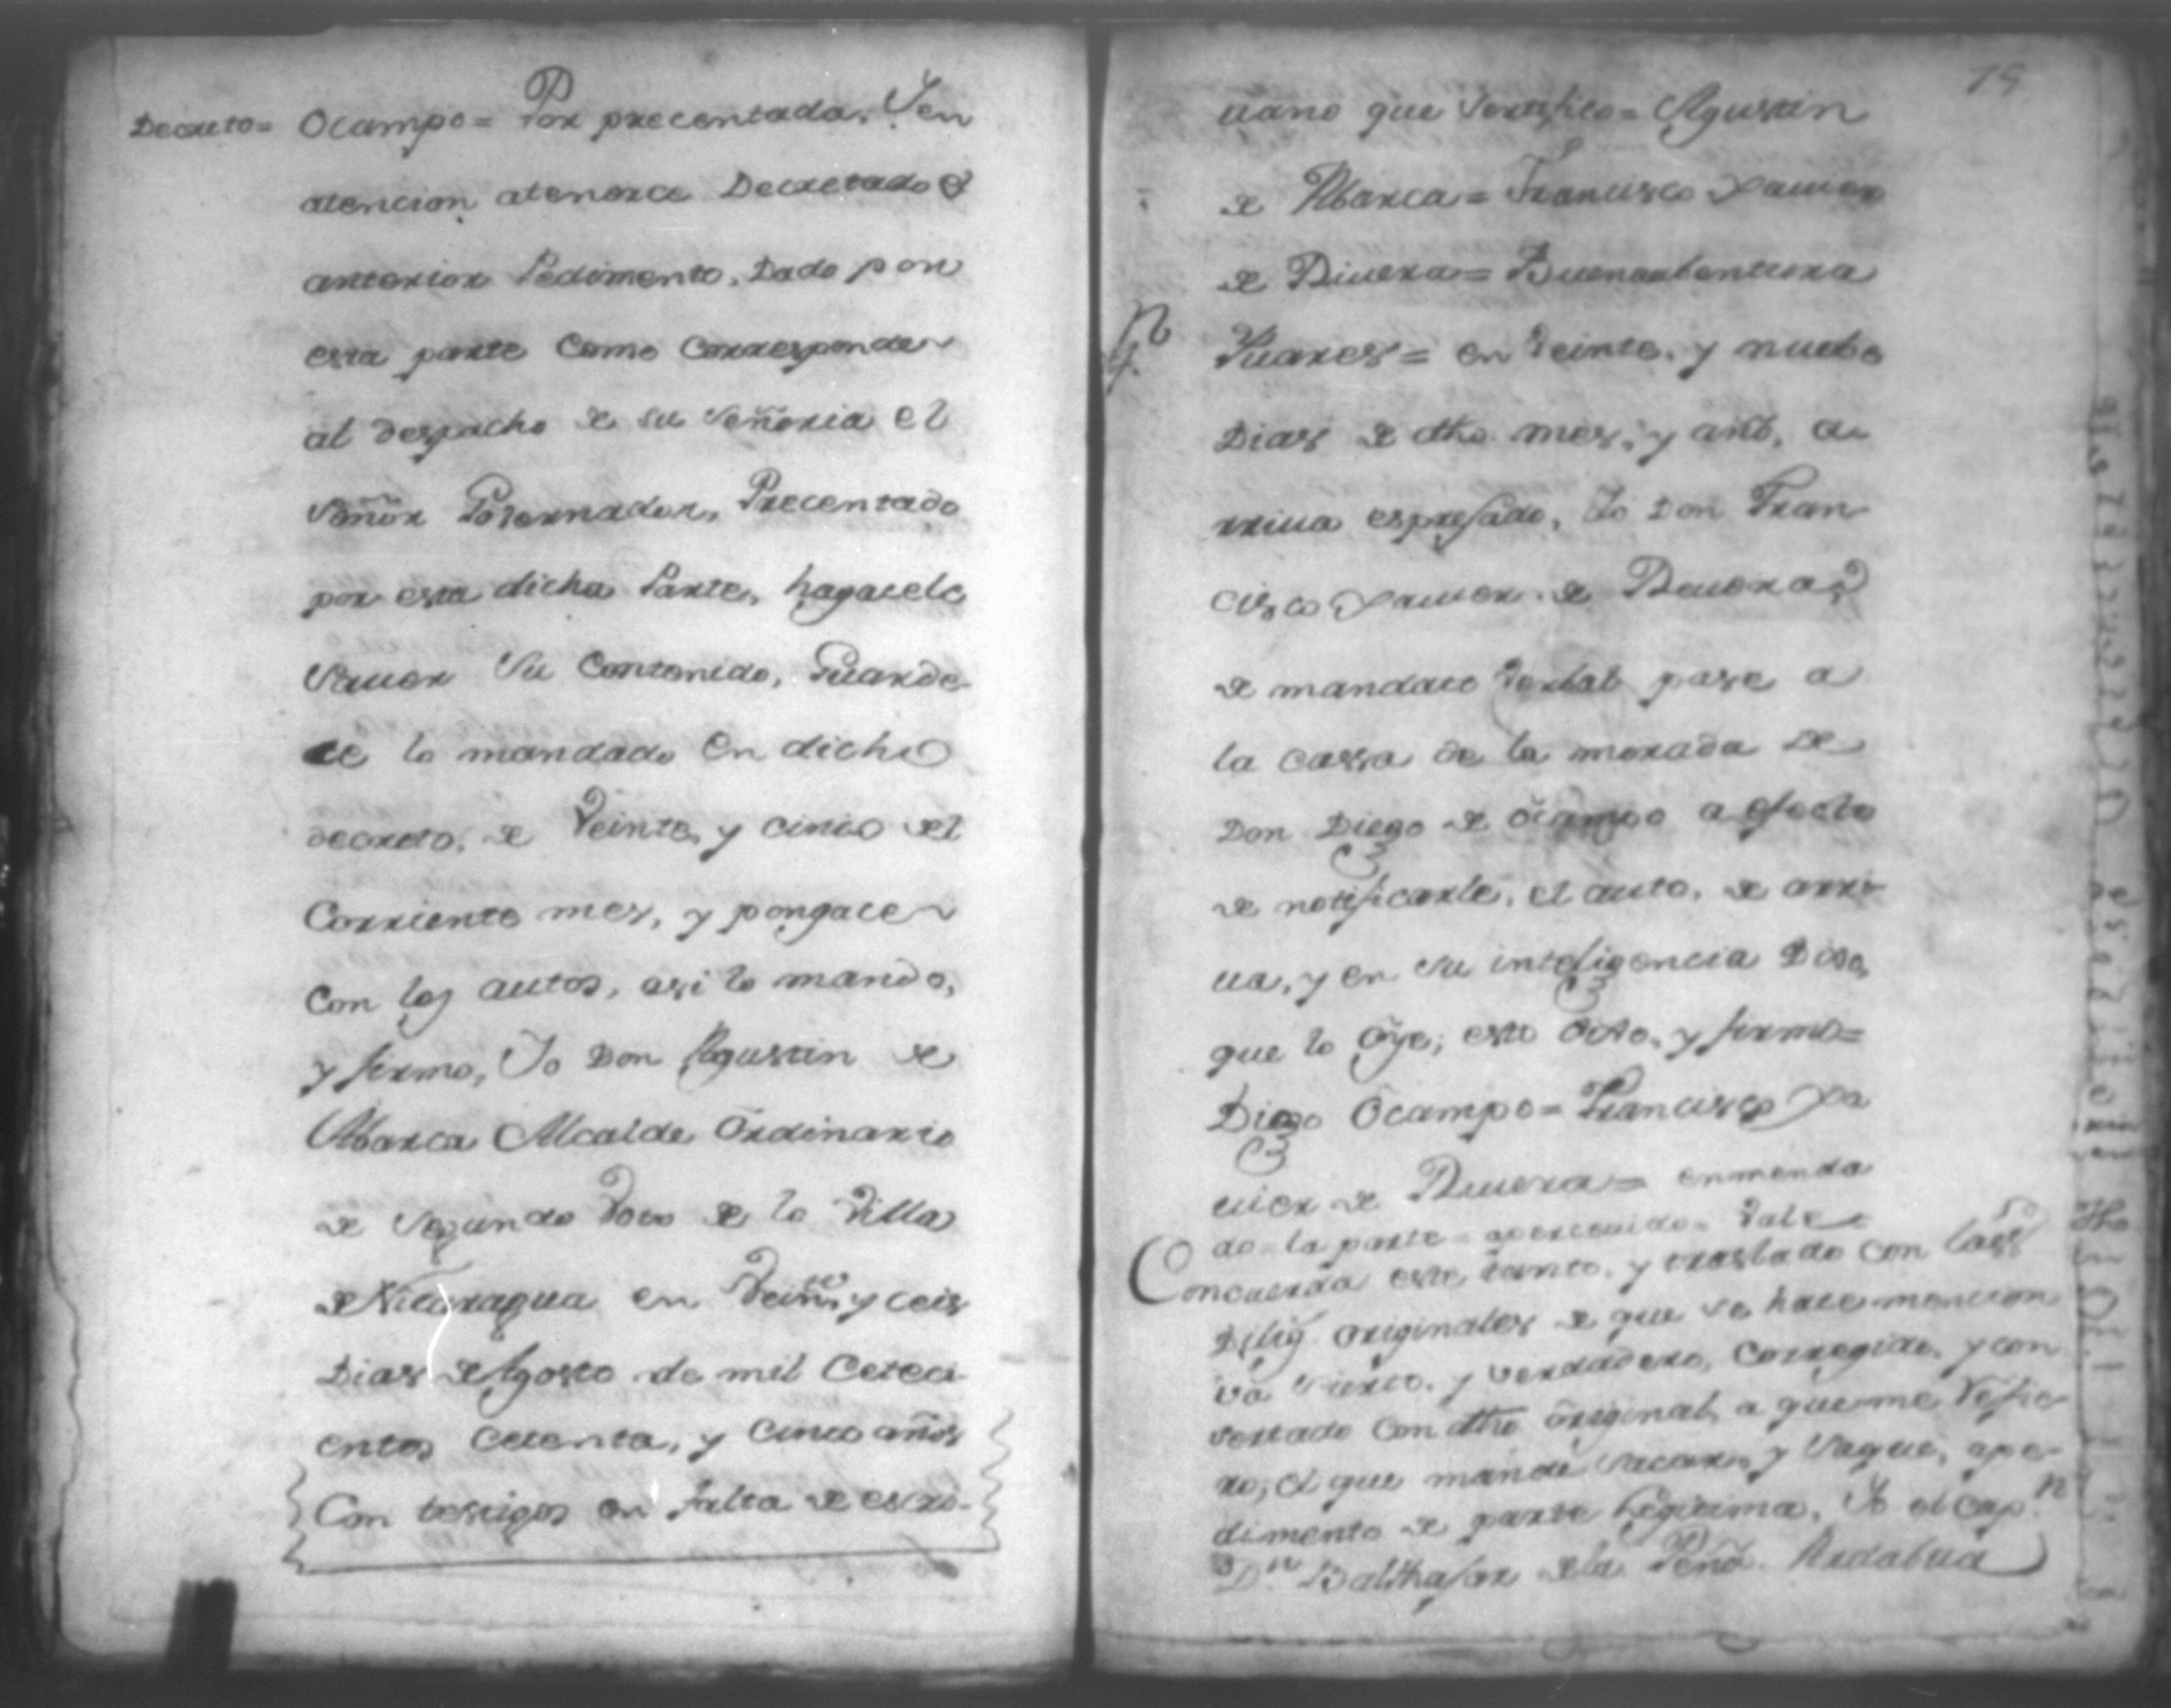 Decreto= Ocampo= Por precentada, Y en
atencion atenerce Decretado el
anterior Pedimento, Dado por
esta parte Como Corresponde
al despacho de su señoria el
señor Governador, Precentado
por esta dicha Parte, hagacele
saver su Contenido, Guarde
ce lo mandado en dicho
decreto, de Veinte, y cinco del
Corriente mes, y pongace
Con los autos, asi lo mando,
y firmo, Yo Don Agustin de
Abarca Alcalde Ordinario
de segundo Voto de la Villa
de Nicaragua en Veinte y ceis
Dias de Agosto de mil Ceteci
entos Cetenta, y Cinco años
Con testigos en falta de escri-
19
uano que sertifico= Agustin
de Abarca= Francisco Xauier
de Riuera= Buenaubentura
Suares= en Veinte, y nuebe
Dias de dho mes, y año, a
rriua espresado, Yo Don Fran
cisco Xauier de Riuera,
de mandato Verbal pase a
la cassa de la morada de
Don Diego de Ocampo a efecto
de notificarle, el auto, de arri
ua, y en su inteligencia Dijo,
que lo Oye; esto Dijo, y firmo=
Diego Ocampo= Francisco Xa
uier de Riuera= enmenda
do= la parte= aperceuido= Vale
Concuerda este tanto, y traslado con las
Dilig. originales de que se hace mencion
va sierto, y verdadero, Corregido, y con
sertado Con dho original, a que me refie
ro; el que mandé sacar, y saque, ape-
dimento de parte Legitima, Yo el Cap.n
D.n Balthasar de la Peña